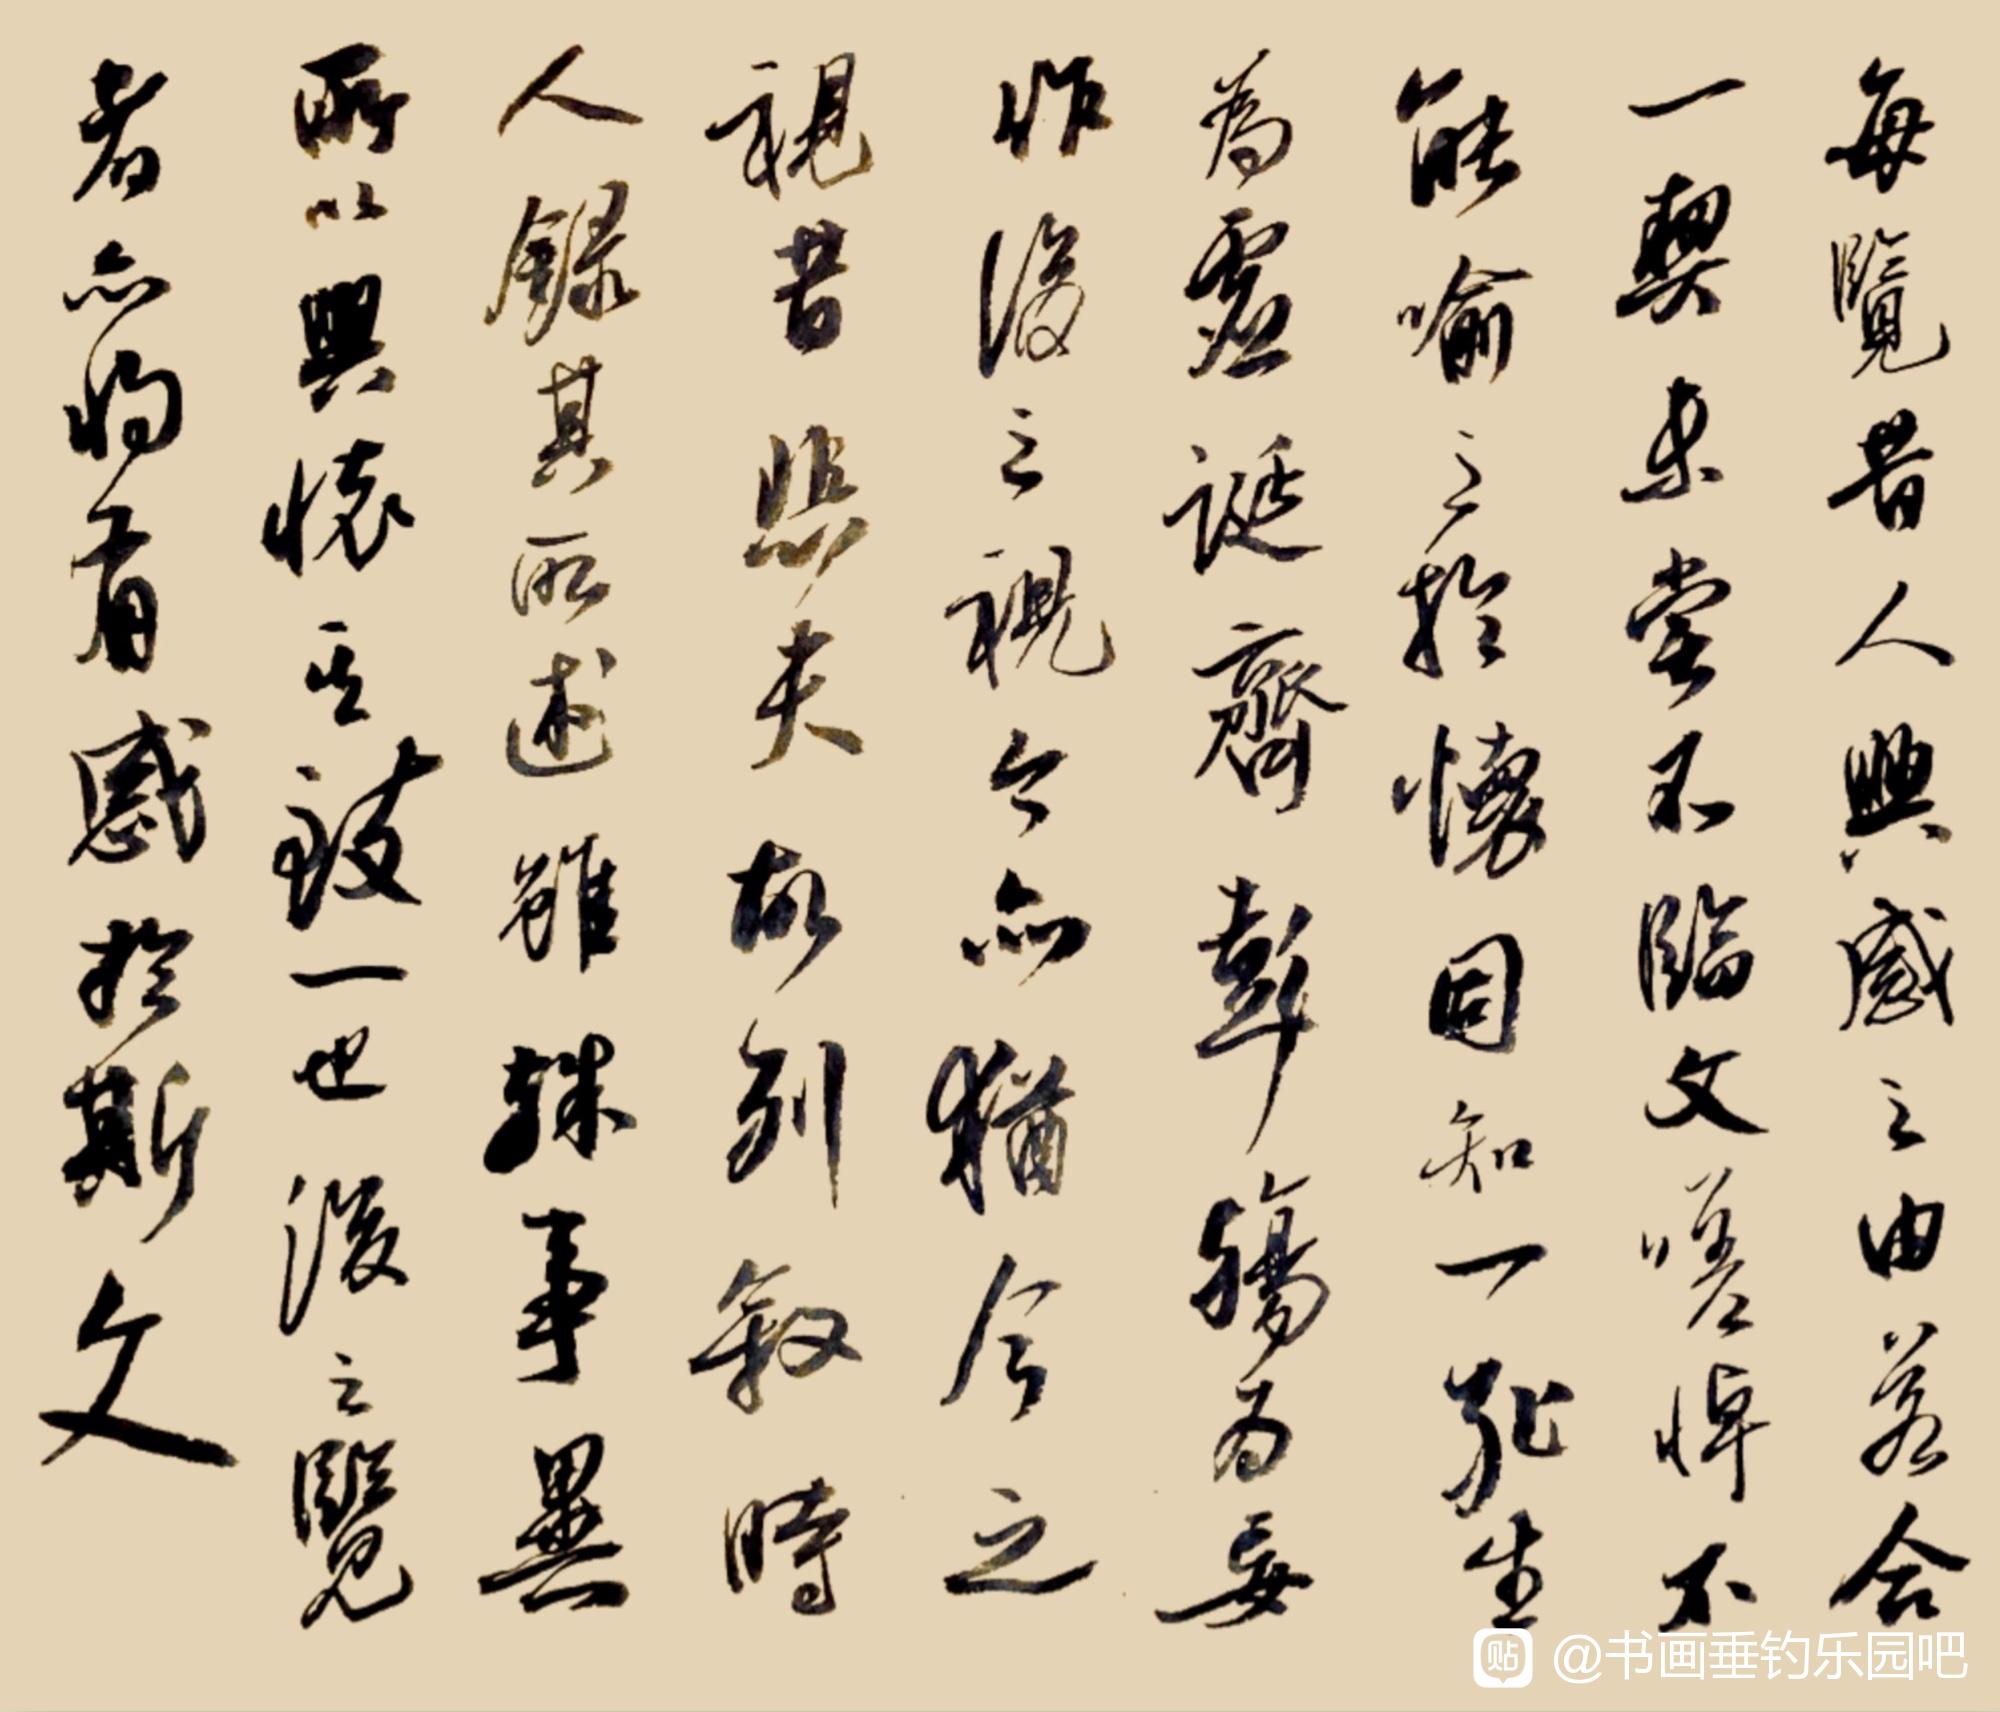 每覽昔人興感之由若合
一契未嘗不臨文嗟悼不
能喻之於懷固知一死生
為虛誕齊彭殤為妄
作後之視今亦猶今之
視昔悲夫故列敘時
人錄其所述雖殊事異
所以興懷其致一也後之覽
者亦將有感於斯文
贴 @书画垂钓乐园吧